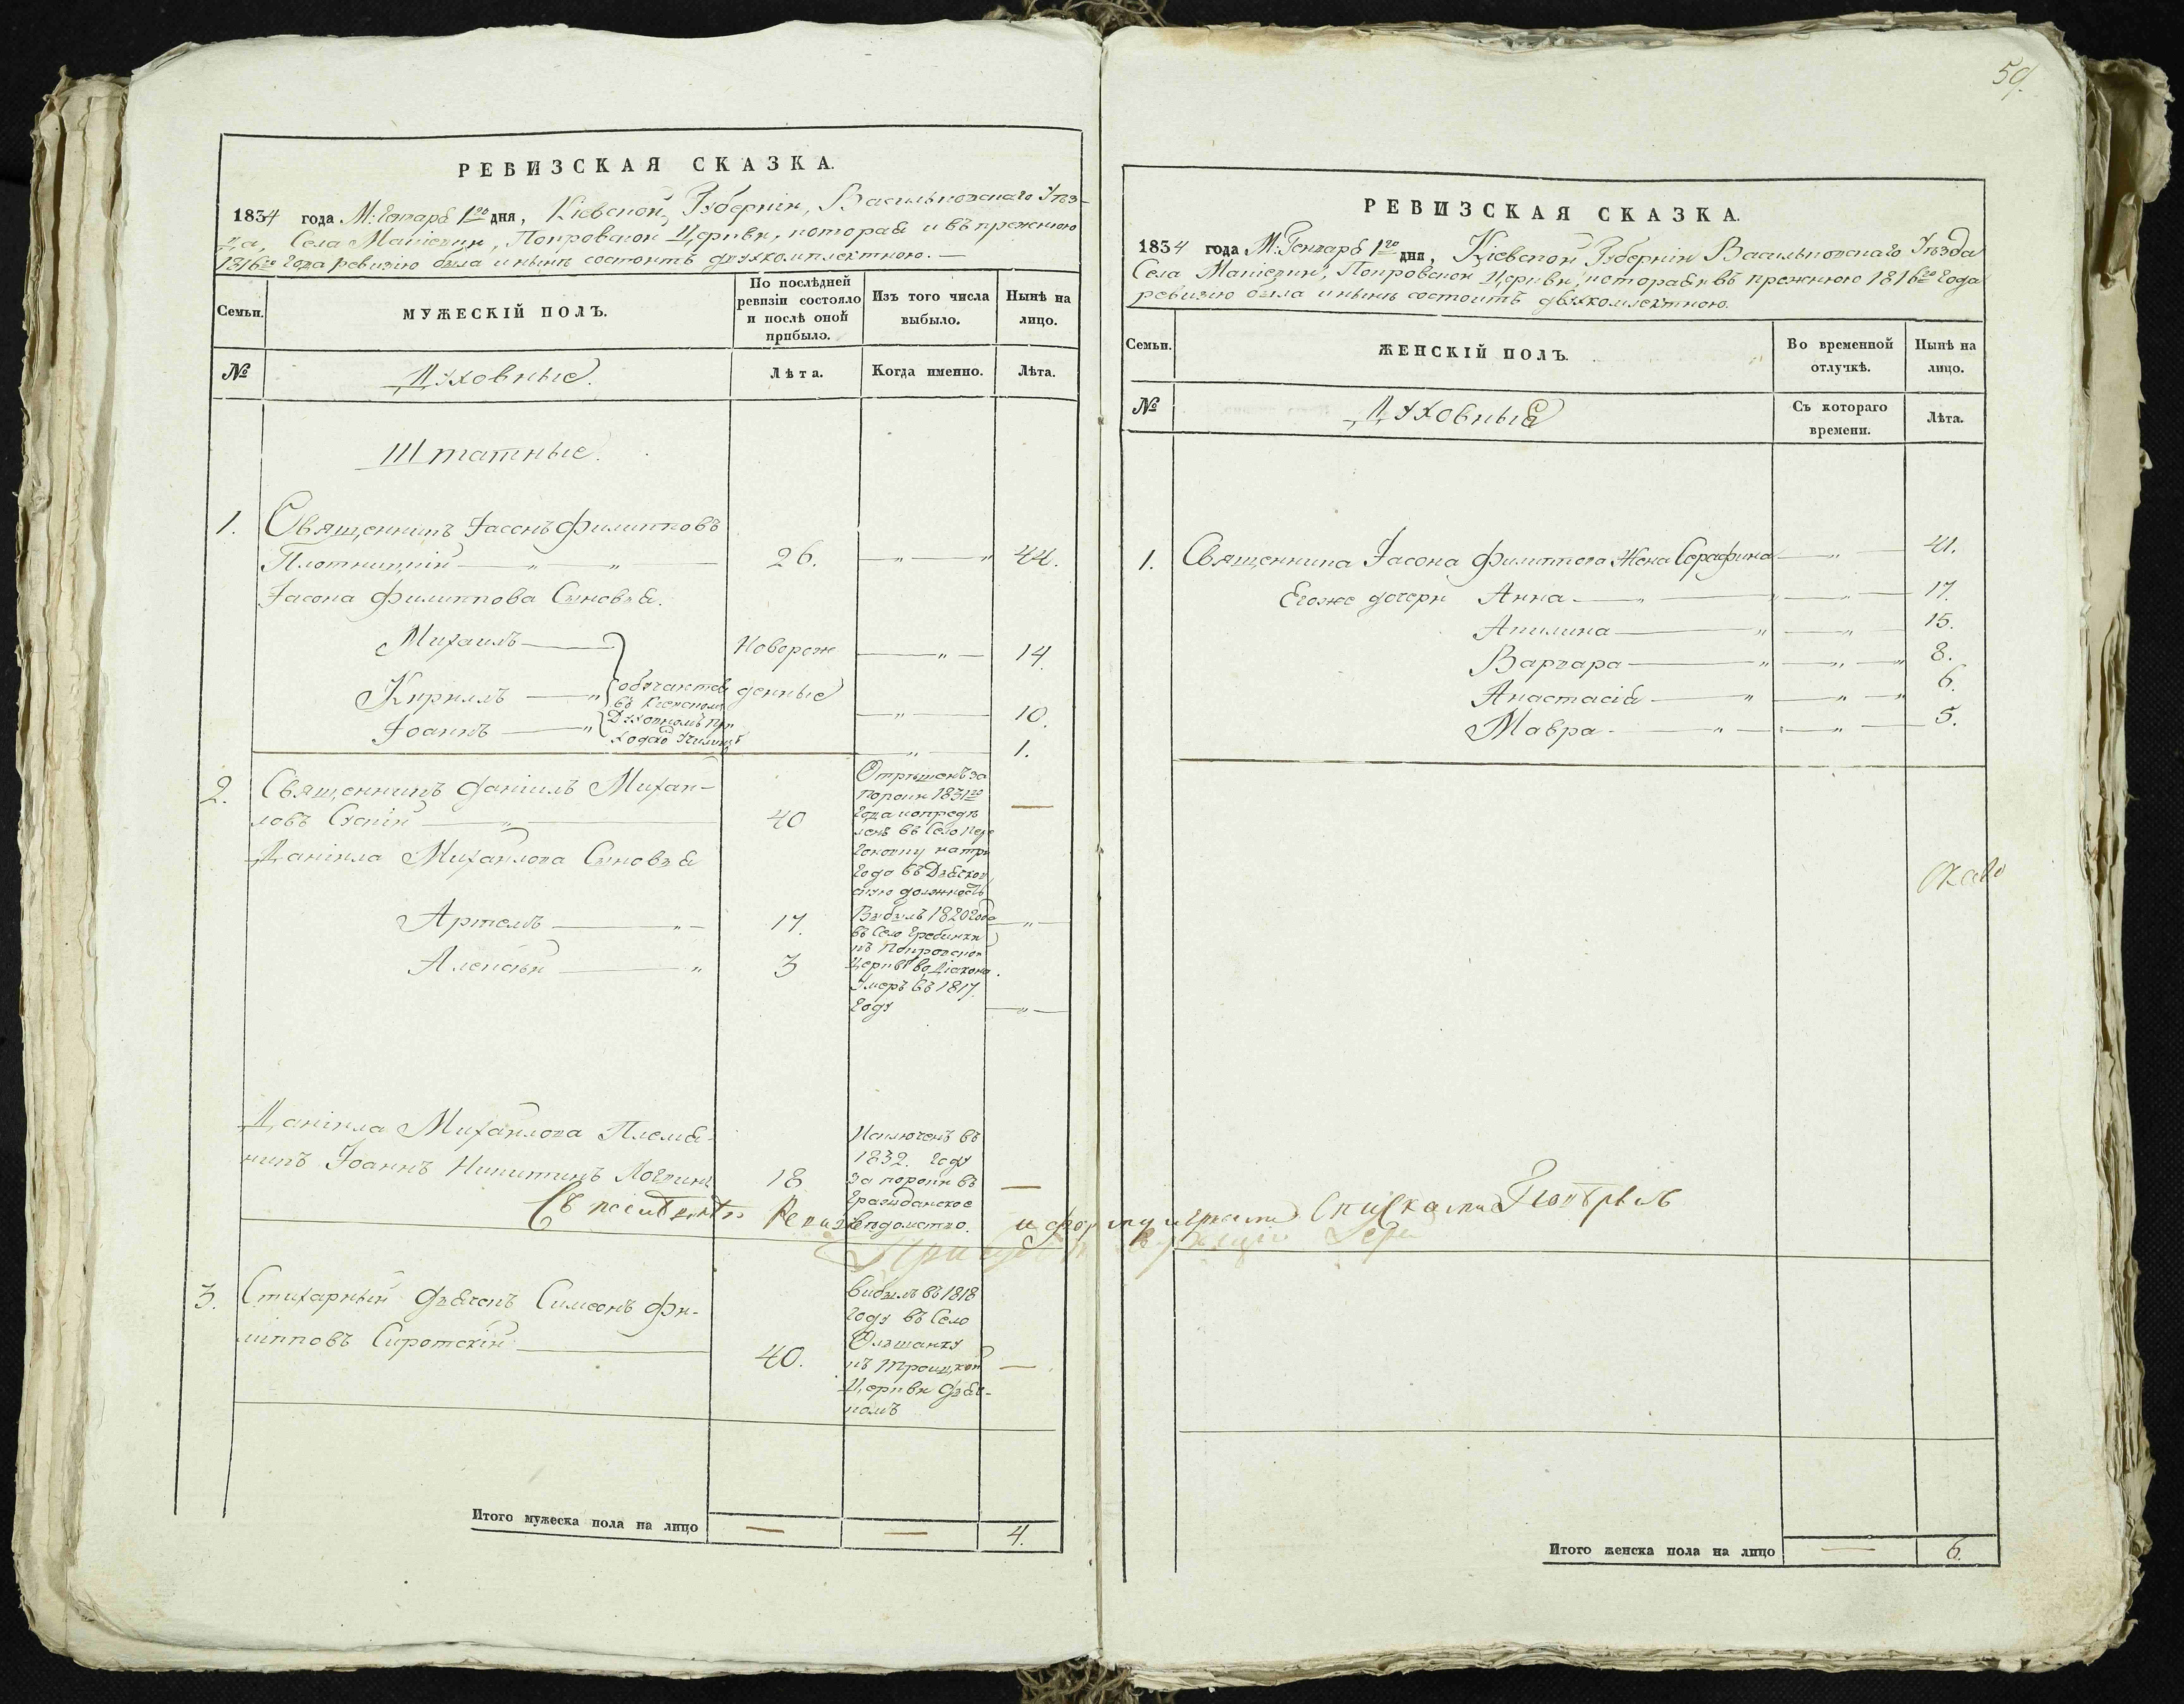 РЕВИЗСКАЯ СКАЗКА.
1834 года М: Генваря 1го дня, Кіевской Губерніи, Васильковскаго Уѣз-
да, Села Мацієвки, Покровской Церкви, которая и въ прежнюю
1816го года ревизію была и нынѣ состоитъ двухкомплектною.
Семьи.
МУЖЕСКІЙ ПОЛЪ.
По послѣдней
ревизіи состояло
и послѣ оной
прибыло.
Изъ того числа
выбыло.
Нынѣ на
лицо.
№
Духовные.
Лѣта.
Когда именно.
Лѣта.
Штатные.
1. Священникъ Іасонъ Филипповъ
Плотницкій 26. 44.
Іасона Филиппова Сыновья.
Михаилъ Новорож 14.
Кирилъ обучаются денные
въ Кіевскомъ
Іоаннъ Духовномъ При 10.
ходско Училищѣ 1.
2. Священникъ Даніилъ Михаи-
ловъ 40
Отрѣшенъ за
пороки 1831го
года и опредѣ
ленъ въ Село Пере
гоновку на три
года въ Дьячков
скую должность
Даніила Михайлова Сыновья
Артемъ 17.
Выбылъ 1820 года
въ Село Гребинки
къ Покровской
Церкві во Діакона.
Алексѣй 3
Умеръ въ 1817.
году
Даніила Михайлова Племя-
никъ Іоаннъ Никитинъ 18
Исключенъ въ
1832. году
за пороки въ
Гражданское
Вѣдомство.
3. Стихарный Дьячокъ Симеонъ Фи-
липповъ Сиротскій 40.
Выбылъ въ 1818
году въ Село
Ольшанку
къ Троицкой
Церкви Дьяч-
комъ
Итого мужеска пола на лицо 4.
59.
РЕВИЗСКАЯ СКАЗКА.
1834 года М: Генваря 1го дня, Кіевской Губерніи Васильковскаго Уѣзда
Села Мацієвки, Покровской Церкви, которая и въ прежнюю 1816го года
ревизію была и нынѣ состоитъ двухкомлектною.
Семьи.
ЖЕНСКІЙ ПОЛЪ.
Во временной
отлучкѣ.
Нынѣ на
лицо.
№
Духовныя
Съ котораго
времени.
Лѣта.
1. Священника Іасона Филиппова Жена Серафима 41.
Егоже дочери Анна 17.
Акилина 15.
Варвара 8.
Анастасія 6.
Мавра 5.
списками
Итого женска пола на лицо 6.